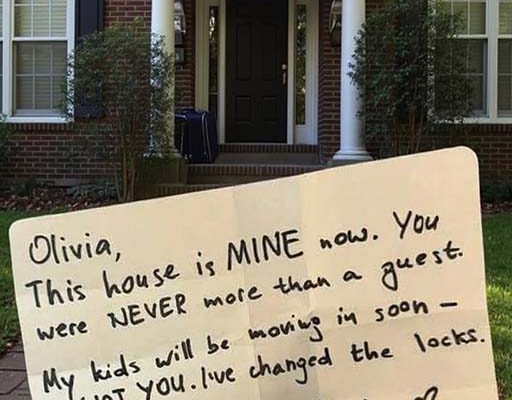 Olivia,
This house is MINE now. You
were NEVER more than a guest.
My kids will be moving in soon —
NOT YOU. I've changed the locks.